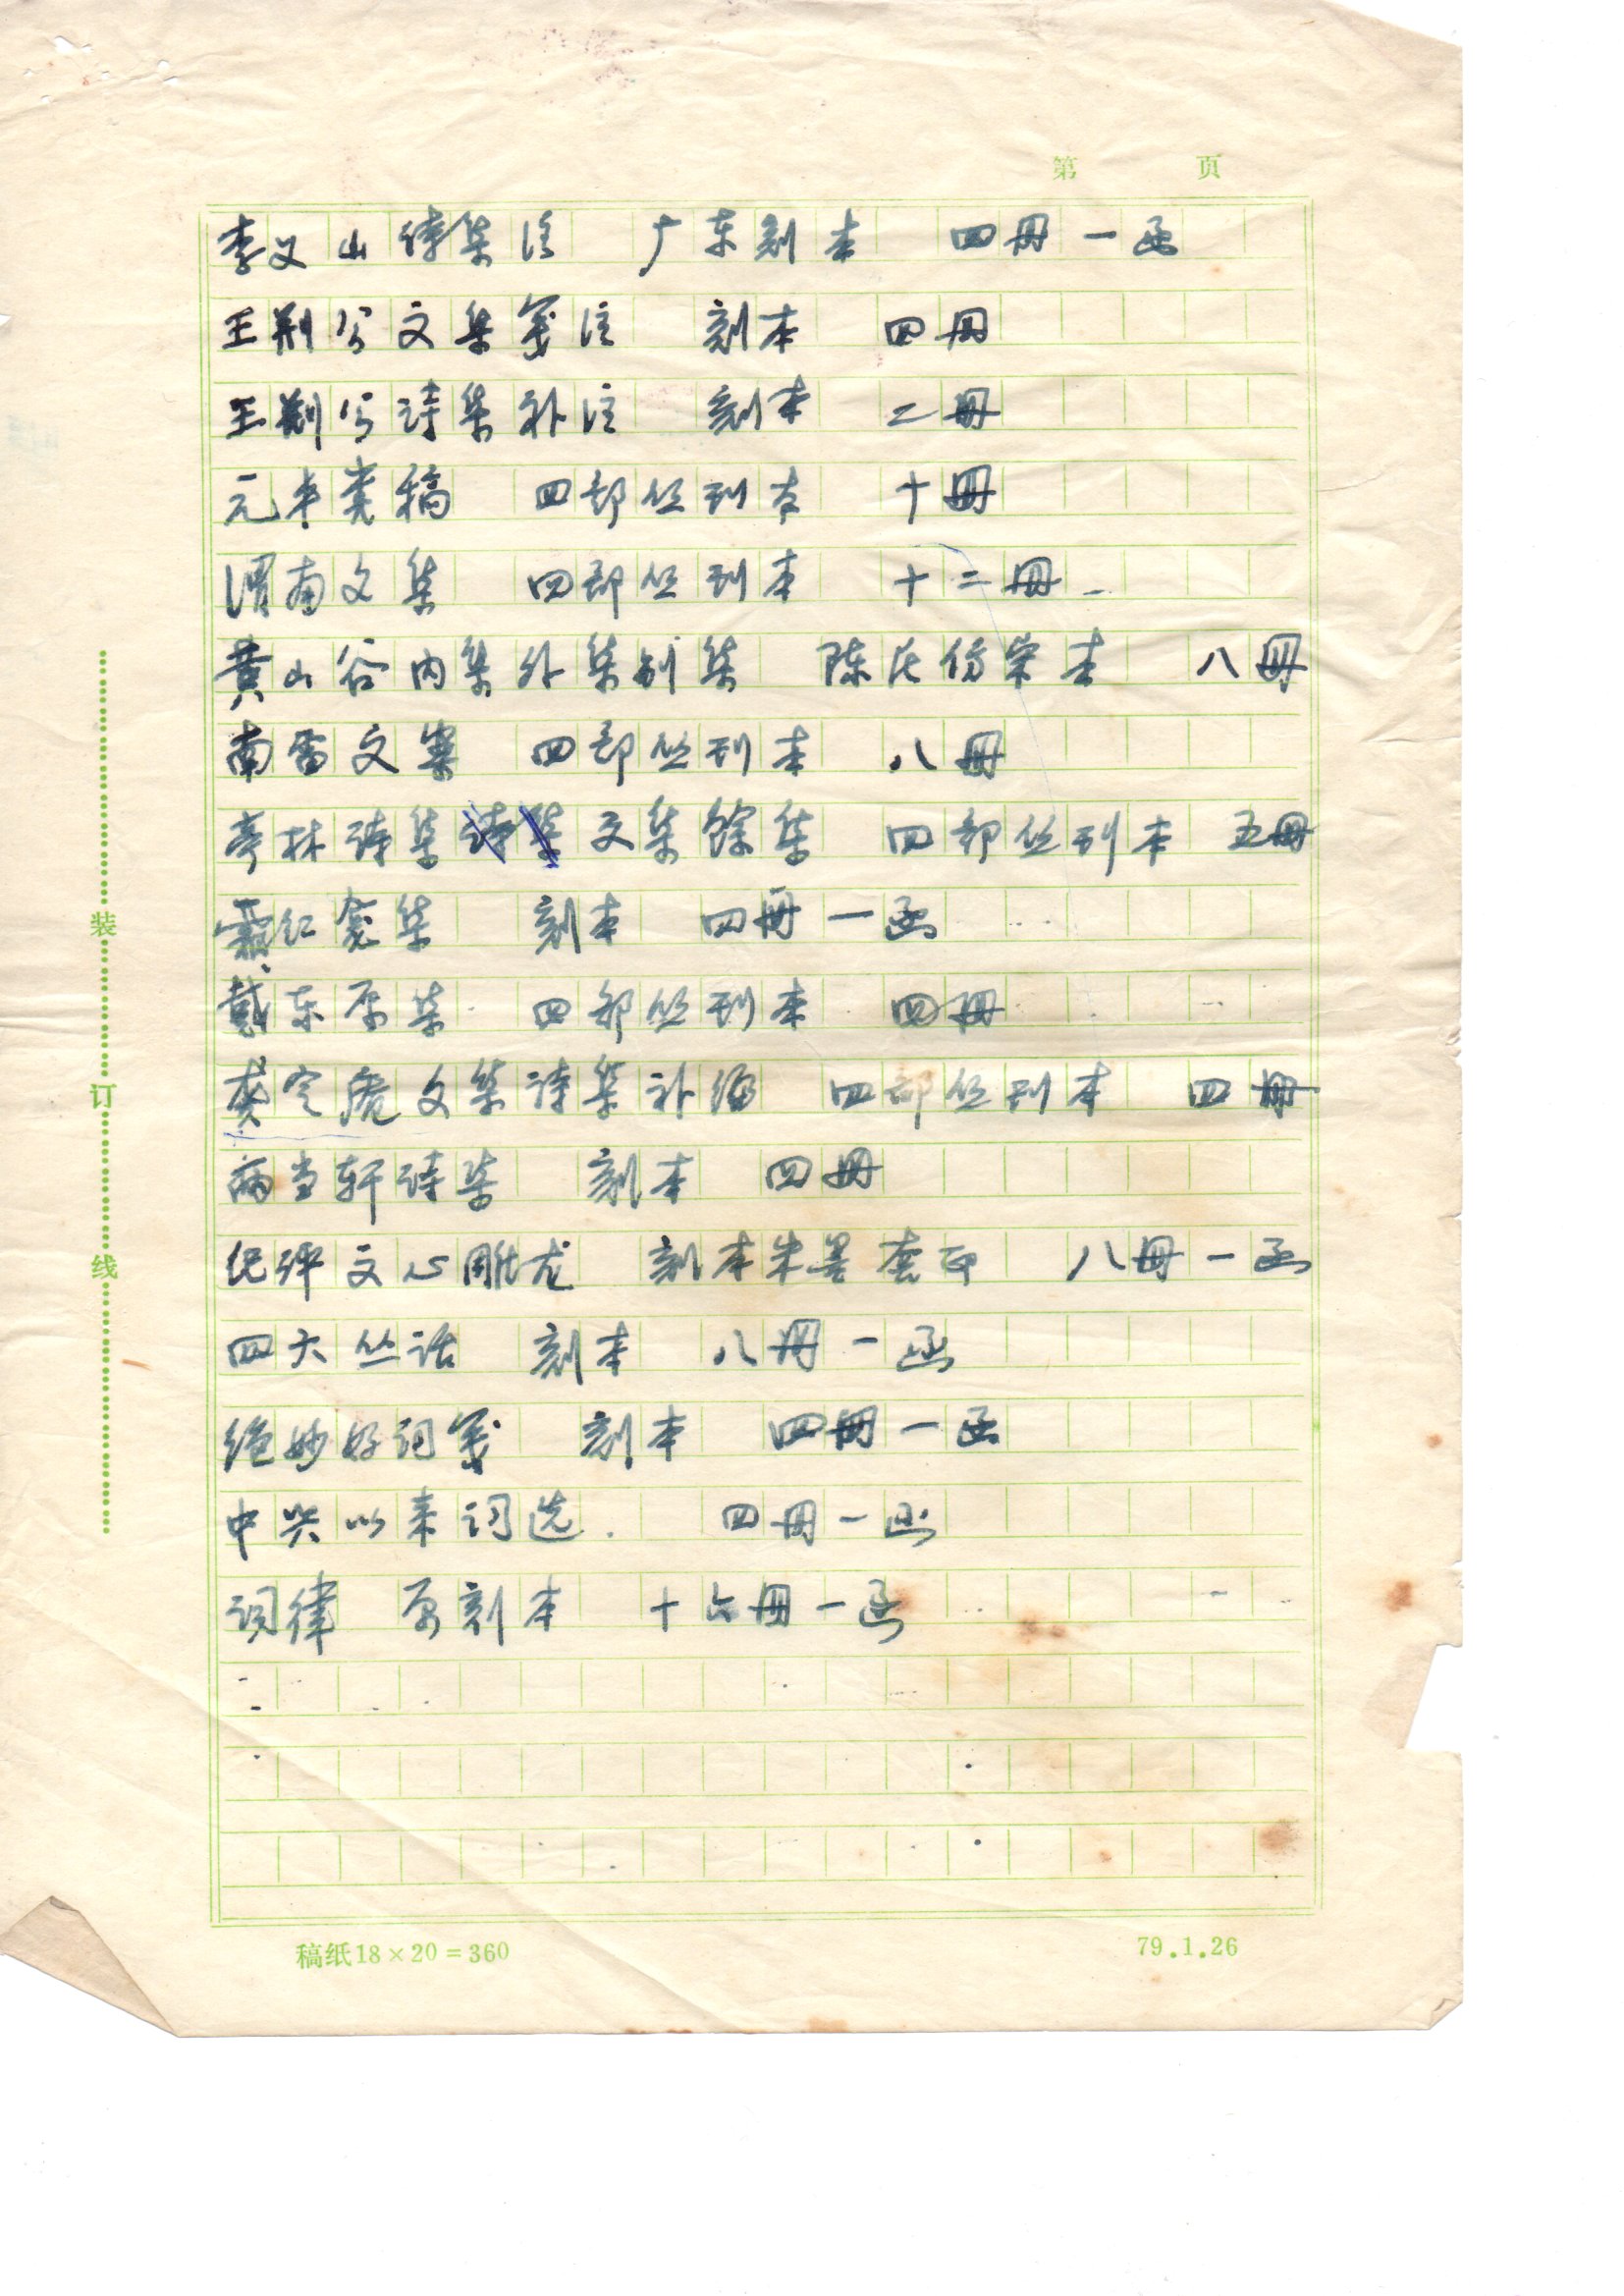 第 页
李义山诗集注 广东刻本 四册一函
王荆公文集笺注 刻本 四册
王荆公诗集补注 刻本 二册
元丰类稿 四部丛刊本 十册
渭南文集 四部丛刊本 十二册
黄山谷内集外集别集 陈氏仿宋本 八册
南雷文案 四部丛刊本 八册
亭林诗集诗集文集馀集 四部丛刊本 五册
霜红龛集 刻本 四册一函
戴东原集 四部丛刊本 四册
龚定庵文集诗集补编 四部丛刊本 四册
两当轩诗集 刻本 四册
纪评文心雕龙 刻本朱墨套印 八册一函
四六丛话 刻本 八册一函
绝妙好词笺 刻本 四册一函
中兴以来词选 四册一函
词律 原刻本 十六册一函
装订线
稿纸18×20=360 79.1.26